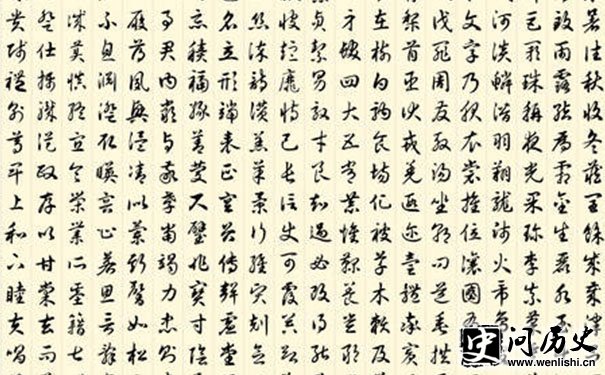 暑往秋收冬藏閏餘成歲律
致雨露結為霜金生麗水玉
巨闕珠稱夜光果珍李柰菜
河淡鱗潛羽翔龍師火帝鳥
文字乃服衣裳推位讓國有
伐罪周發殷湯坐朝問道垂拱
黎首臣伏戎羌遐邇壹體率賓
在樹白駒食場化被草木賴及
身髮四大五常恭惟鞠養豈敢
貞絜男效才良知過必改得能
彼短靡恃己長信使可覆器欲
絲染詩讚羔羊景行維賢克念
名立形端表正空谷傳聲虛堂
惡積福緣善慶尺璧非寶寸陰
事君曰嚴與敬孝當竭力忠則
履薄夙興溫凊似蘭斯馨如松
不息淵澄取映容止若思言辭
誠美慎終宜令榮業所基籍甚
登仕攝職從政存以甘棠去而
貴賤禮別尊卑上和下睦夫唱
史问历史
www.wenlishi.cn